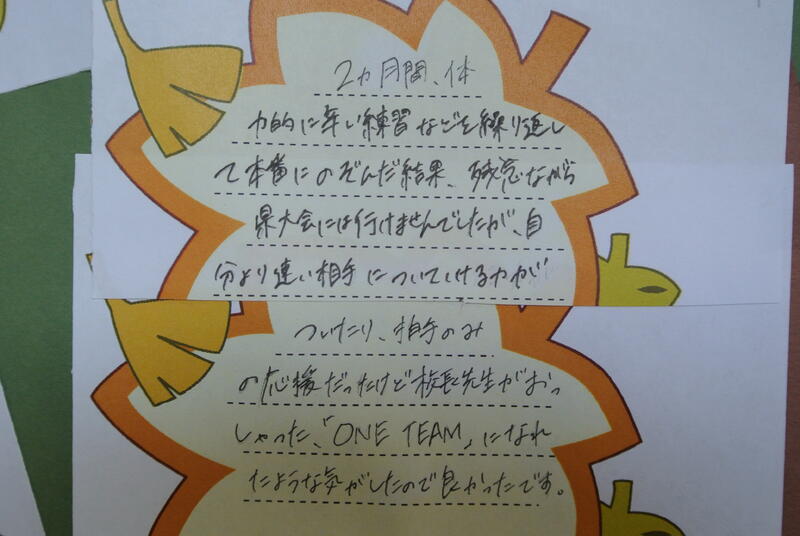 2ヵ月間、体
力的に辛い練習などを繰り返し
て本番にのぞんだ結果、残念ながら
県大会には行けませんでしたが、自
分より速い相手についていける力が
ついたり、拍手のみ
の応援だったけど校長先生がおっ
しゃった、「ONE TEAM」になれ
たような気がしたので良かったです。